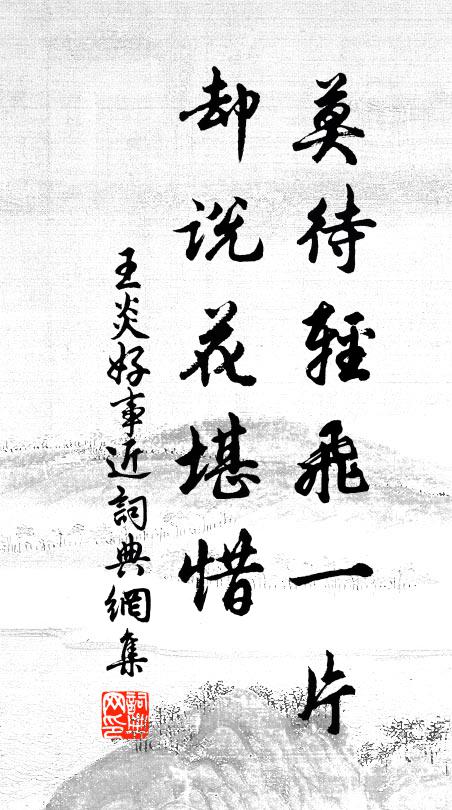 莫待輕飛一片
却说花堪惜
王炎好事近詞典網集